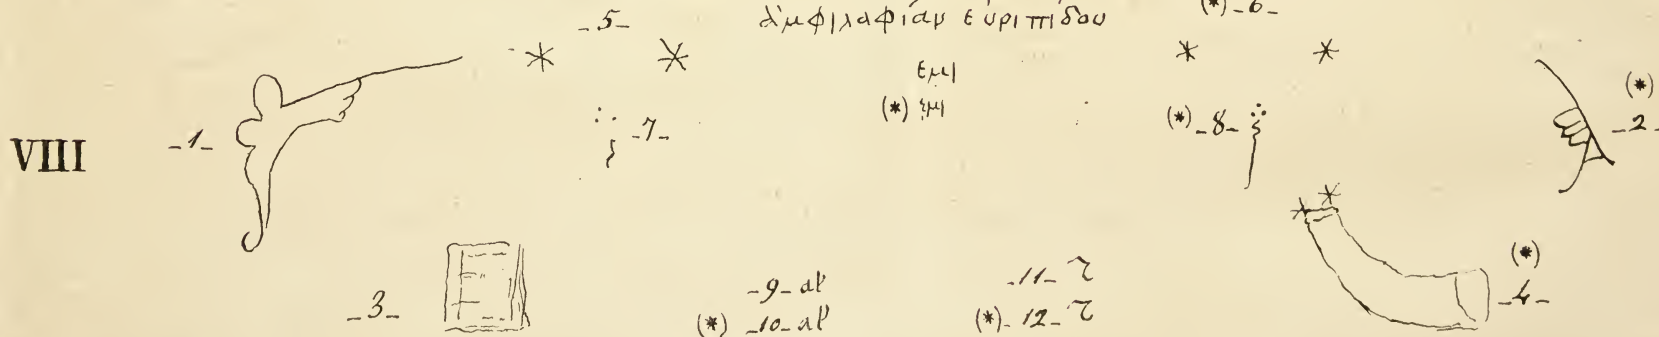 -5- ἀμφιλαφίαν εὐριπίδου (*)-6-
εμι
(*) ημι
VIII -1- -7- (*)-8- (*) -2-
-3- -9- al' -11- τ (*) -4-
(*) -10- al' (*)-12- τ